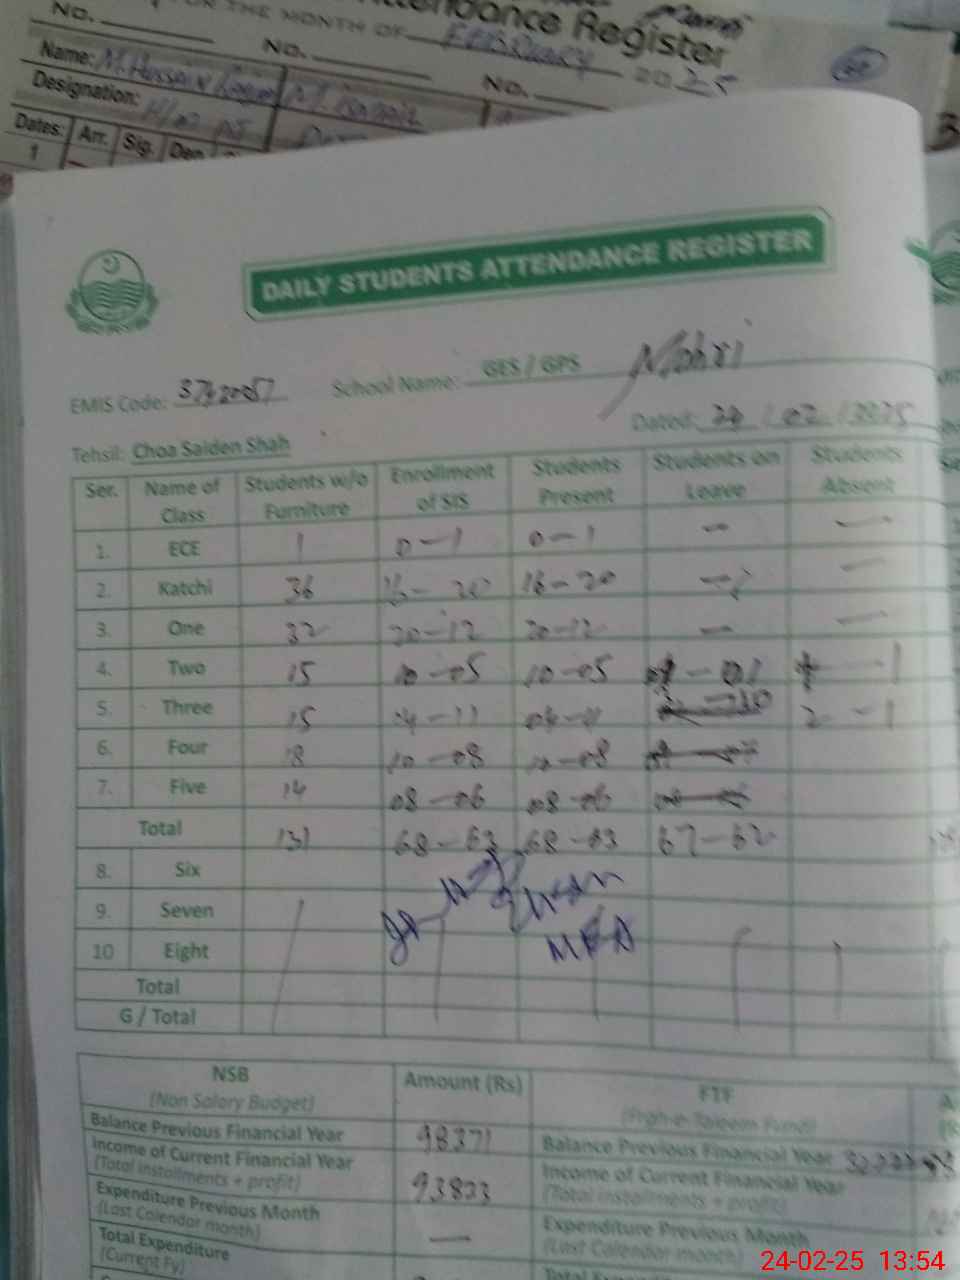 Attendance Register
FOR THE MONTH OF February 2025
No. No. No.
Name: M.
Designation:
Dates: Arr. Sig. Dep.
1
DAILY STUDENTS ATTENDANCE REGISTER
EMIS Code: School Name: GES / GPS Mohri
Dated: 24 / 02 / 2025
Tehsil: Choa Saiden Shah
Ser. Name of Class Students w/o Furniture Enrollment of SIS Students Present Students on Leave Students Absent
1. ECE 1 0-1 0-1 - -
2. Katchi 36 16-20 16-20 - -
3. One 32 20-12 20-12 - -
4. Two 15 10-05 10-05 -01 -1
5. Three 15 04-11 04-11 2-1
6. Four 18 10-08 10-08
7. Five 14 08-06 08-06
Total 131 68-63 68-63 67-62
8. Six
9. Seven
10 Eight
MEA
Total
G / Total
NSB (Non Salary Budget) Amount (Rs) FTF (Frogh-e-Taleem Fund)
Balance Previous Financial Year 98371 Balance Previous Financial Year
Income of Current Financial Year (Total installments + profit) 93823 Income of Current Financial Year (Total installments + profit)
Expenditure Previous Month (Last Calendar month) - Expenditure Previous Month (Last Calendar month)
Total Expenditure (Current Fy)
24-02-25 13:54